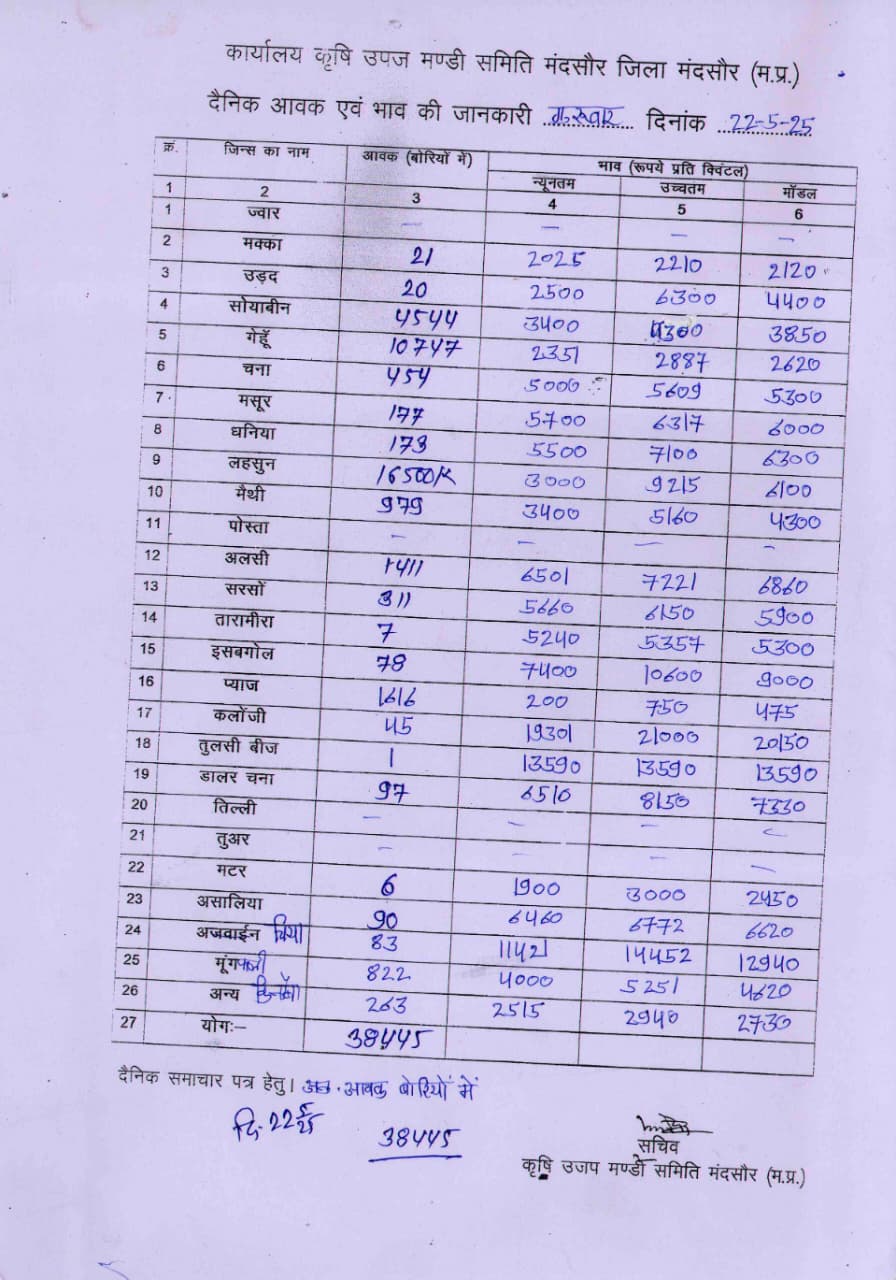 कार्यालय कृषि उपज मण्डी समिति मंदसौर जिला मंदसौर (म.प्र.)
दैनिक आवक एवं भाव की जानकारी गुरूवार दिनांक 22-5-25
क्र. जिन्स का नाम आवक (बोरियों में) भाव (रूपये प्रति क्विंटल)
न्यूनतम उच्चतम मॉडल
1 2 3 4 5 6
1 ज्वार — — — —
2 मक्का 21 2025 2210 2120
3 उड़द 20 2500 6300 4400
4 सोयाबीन 4544 3400 4300 3850
5 गेहूँ 10747 2351 2887 2620
6 चना 454 5000 5609 5300
7 मसूर 177 5700 6317 6000
8 धनिया 173 5500 7100 6300
9 लहसुन 16500/K 3000 9215 6100
10 मैथी 979 3400 5160 4300
11 पोस्ता — — — —
12 अलसी 1411 6501 7221 6860
13 सरसों 311 5660 6150 5900
14 तारामीरा 7 5240 5357 5300
15 इसबगोल 78 7400 10600 9000
16 प्याज 1616 200 750 475
17 कलोंजी 45 19301 21000 20150
18 तुलसी बीज 1 13590 13590 13590
19 डालर चना 97 6510 8150 7330
20 तिल्ली — — — —
21 तुअर — — — —
22 मटर 6 1900 3000 2450
23 असालिया 90 6460 6772 6620
24 अजवाईन चिया 83 11421 14452 12940
25 मूंगफली 822 4000 5251 4620
26 अन्य 263 2515 2940 2730
27 योगः– 38445
दैनिक समाचार पत्र हेतु। आवक बोरियों में
दि. 22 5/25 38445
सचिव
कृषि उजप मण्डी समिति मंदसौर (म.प्र.)